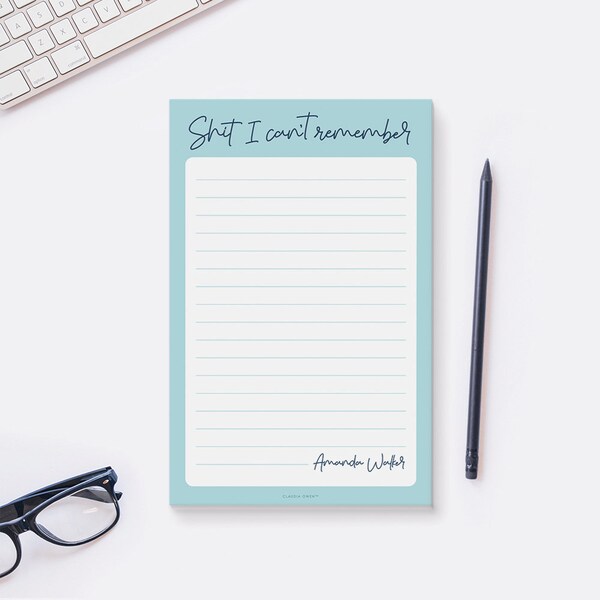 Shit I can't remember
Amanda Walker